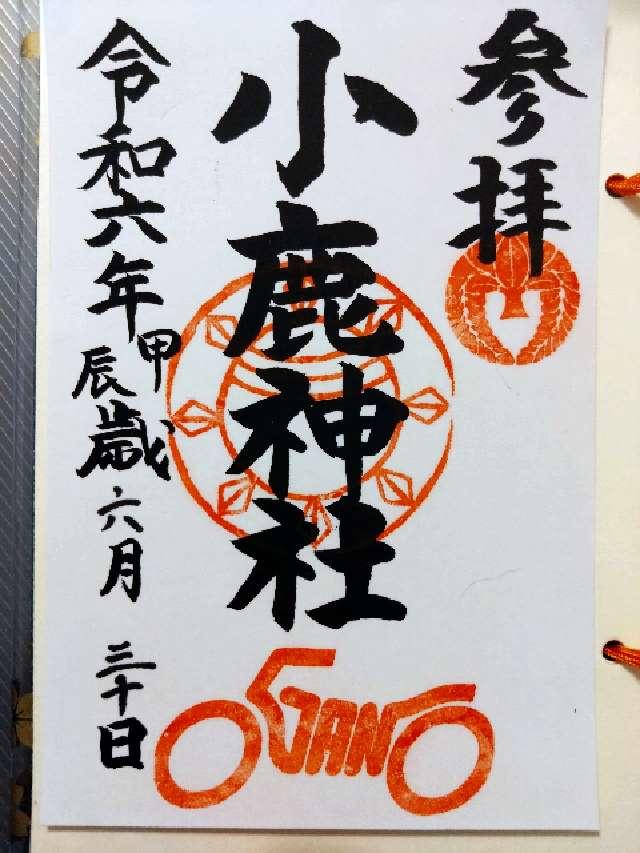 参拝
小鹿神社
令和六年甲辰歳六月三十日
OGANO